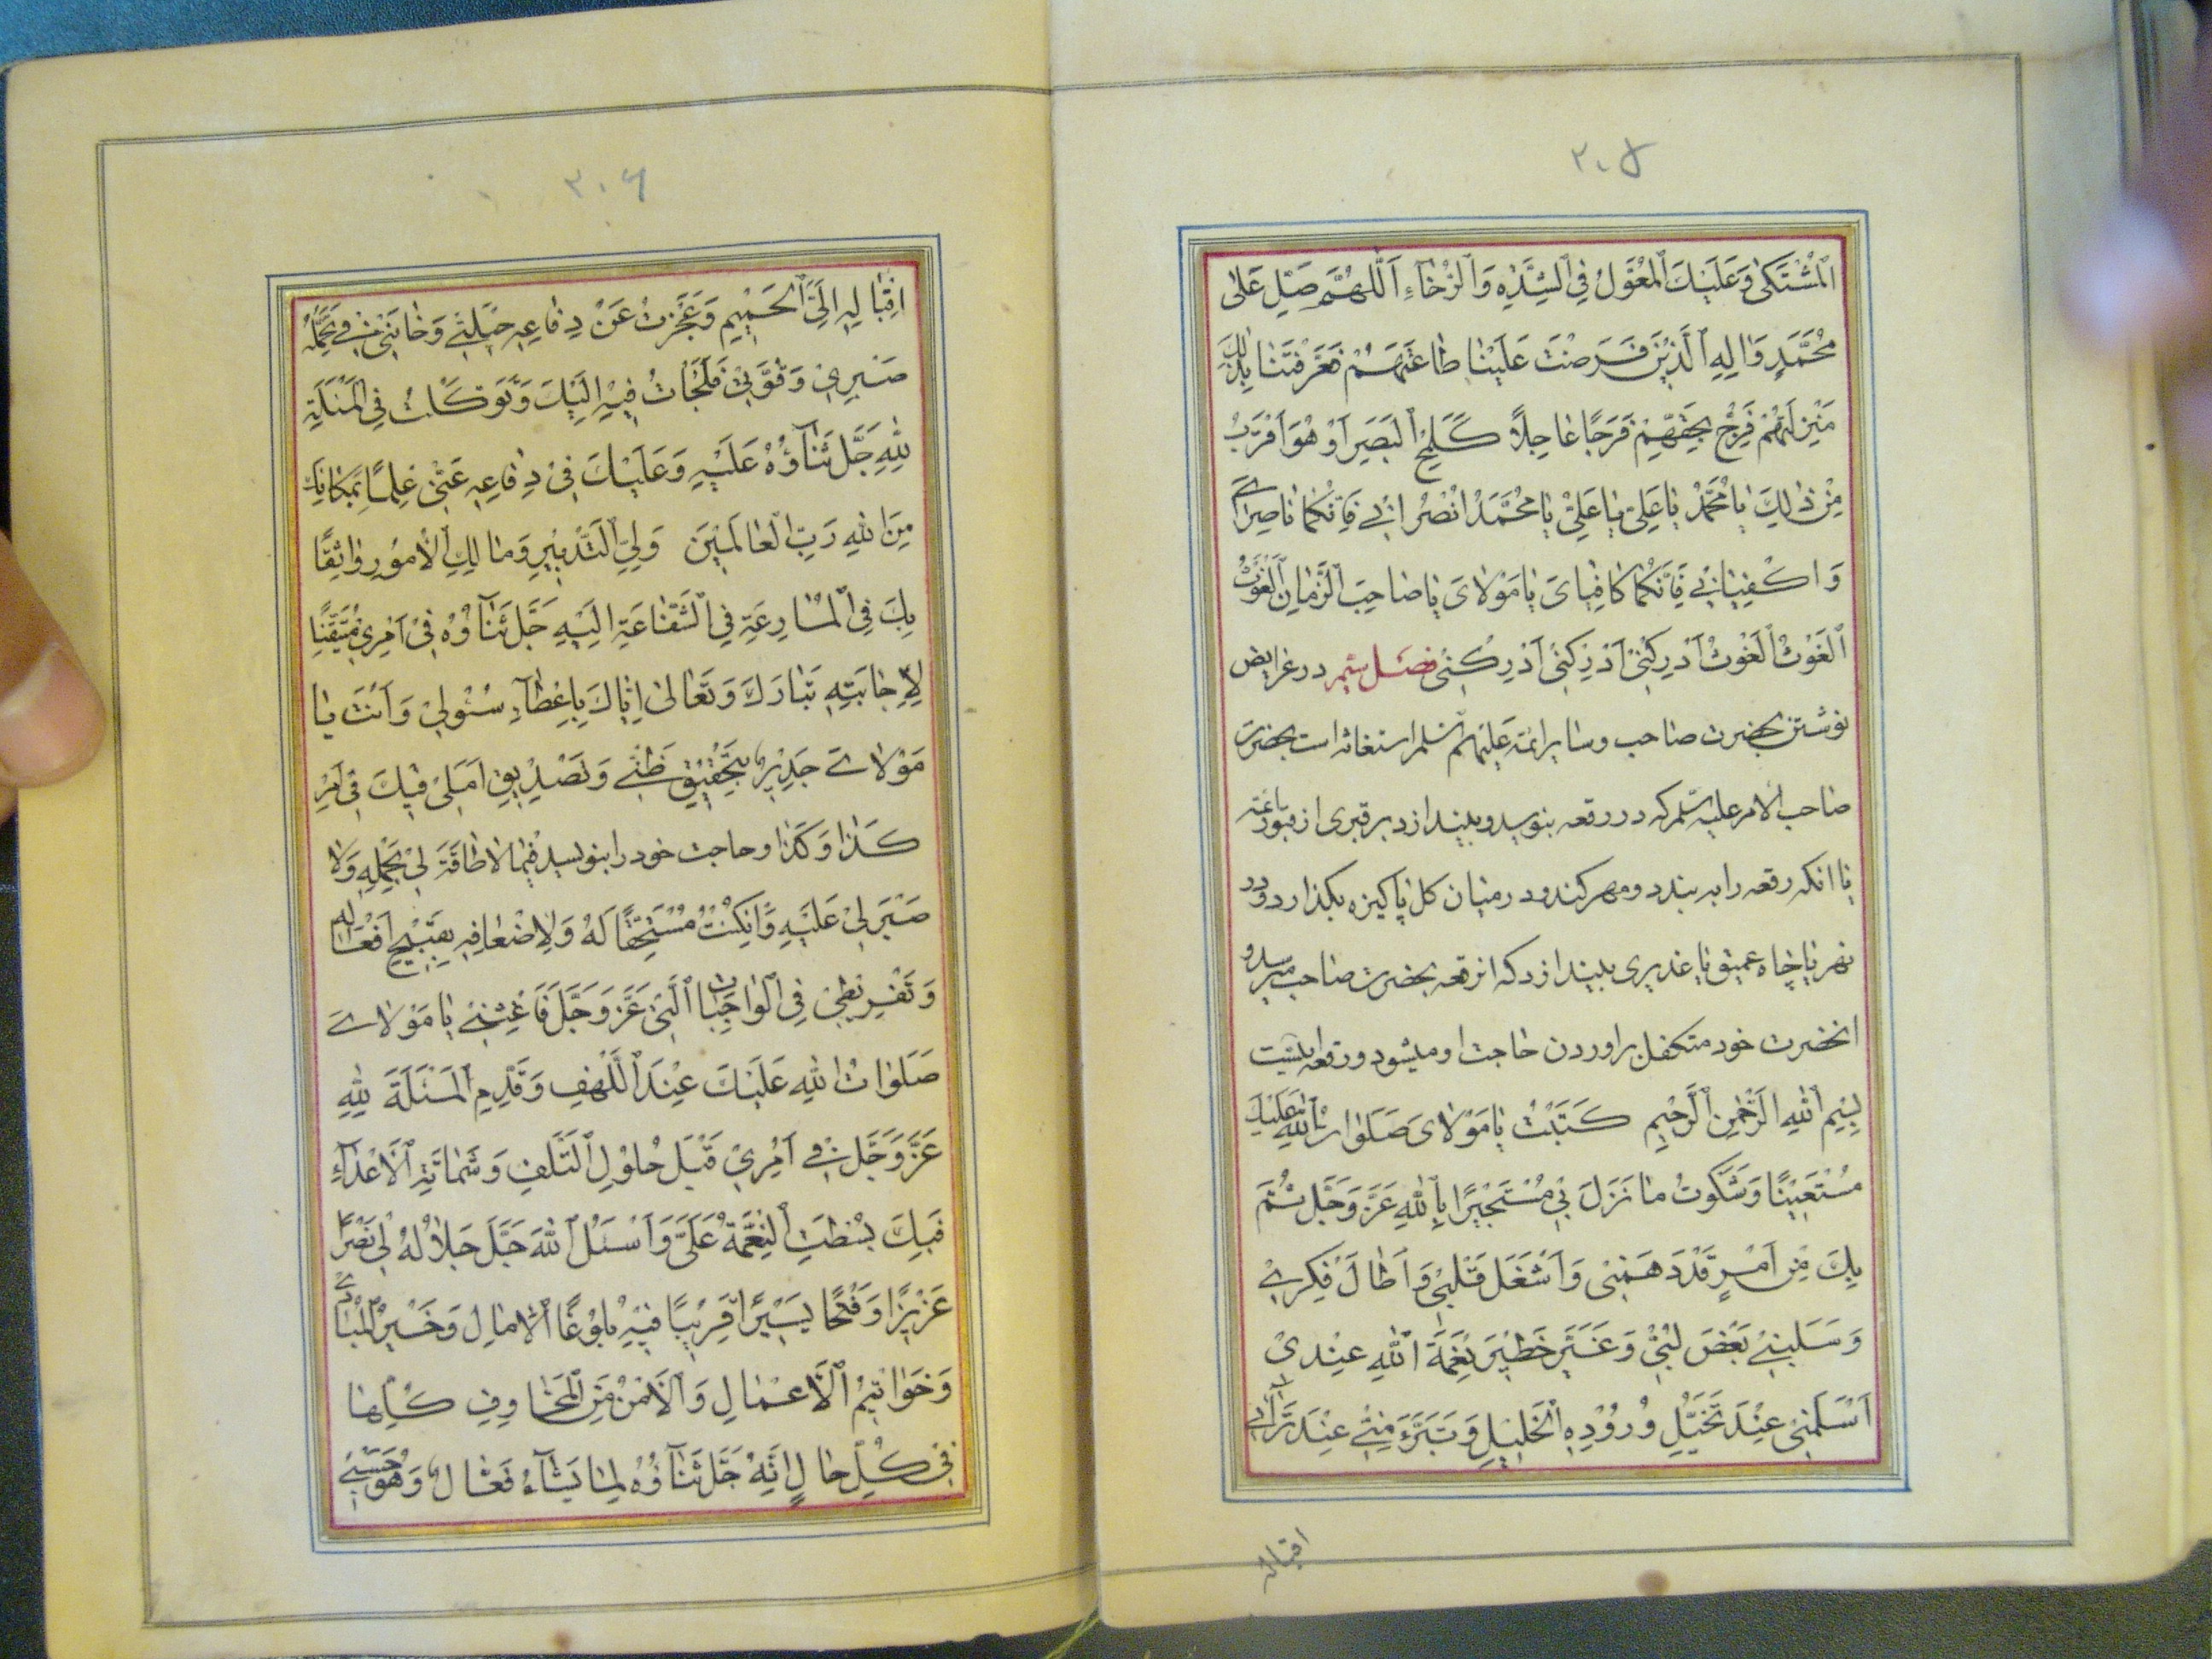 ٢٠٥
اَلْمُشْتَكیٰ وَعَلَيْكَ الْمُعَوَّلُ فِي الشِّدَّةِ وَالرَّخٰاءِ اَللّٰهُمَّ صَلِّ عَلیٰ
مُحَمَّدٍ وَاٰلِهِ الَّذِيْنَ فَرَضْتَ عَلَيْنٰا طٰاعَتَهُمْ فَعَرَّفْتَنٰا بِذٰلِكَ
مَنْزِلَتَهُمْ فَرِّجْ بِحَقِّهِمْ فَرَجًا عٰاجِلاً كَلَمْحِ الْبَصَرِ اَوْ هُوَ اَقْرَبُ
مِنْ ذٰلِكَ يٰا مُحَمَّدُ يٰا عَلِيُّ يٰا عَلِيُّ يٰا مُحَمَّدُ انْصُرٰانِي فَاِنَّكُمٰا نٰاصِرٰايَ
وَاكْفِيٰانِي فَاِنَّكُمٰا كٰافِيٰايَ يٰا مَوْلاٰيَ يٰا صٰاحِبَ الزَّمٰانِ اَلْغَوْثَ
اَلْغَوْثَ اَلْغَوْثَ اَدْرِكْنِيْ اَدْرِكْنِيْ اَدْرِكْنِيْ فصل در عرایض
نوشتن بحضرت صاحب وسایر ائمه علیهم السلم استغاثه است بحضرت
صاحب الامر علیه السلم که در رقعه بنویسد و بیندازد بر قبری از قبور ائمه
یا انکه رقعه را به بندد و مهر کند و در میان کل پاکیزه بگذارد و در
نهر یا چاه عمیق یا غدیری بیندازد که انرقعه بحضرت صاحب میرسد و
انحضرت خود متکفل براوردن حاجت او میشود و رقعه اینست
بِسْمِ اللّٰهِ الرَّحْمٰنِ الرَّحِيْمِ كَتَبْتُ يٰا مَوْلاٰيَ صَلَوٰاتُ اللّٰهِ عَلَيْكَ
مُسْتَغِيْثًا وَشَكَوْتُ مٰا نَزَلَ بِيْ مُسْتَجِيْرًا بِاللّٰهِ عَزَّ وَجَلَّ ثُمَّ
بِكَ مِنْ اَمْرٍ قَدْ دَهَمَنِيْ وَاَشْغَلَ قَلْبِيْ وَاَطٰالَ فِكْرِيْ
وَسَلَبَنِيْ بَعْضَ لُبِّيْ وَغَيَّرَ خَطِيْرَ نِعْمَةِ اللّٰهِ عِنْدِيْ
اَسْلَمَنِيْ عِنْدَ تَخَيُّلِ وُرُوْدِهِ الْخَلِيْلِ وَتَبَرَّءَ مِنِّيْ عِنْدَ تَرٰائِيْ
اقباله
٢٠٦
اِقْبٰالِهِ اِلَيَّ الْحَمِيْمِ وَعَجَزَتْ عَنْ دِفٰاعِهِ حِيْلَتِيْ وَخٰانَنِيْ فِيْ تَحَمُّلِهِ
صَبْرِيْ وَقُوَّتِيْ فَلَجَأْتُ فِيْهِ اِلَيْكَ وَتَوَكَّلْتُ فِي الْمَسْئَلَةِ
لِلّٰهِ جَلَّ ثَنٰاؤُهُ عَلَيْهِ وَعَلَيْكَ فِيْ دِفٰاعِهِ عَنِّيْ عِلْمًا بِمَكٰانِكَ
مِنَ اللّٰهِ رَبِّ الْعٰالَمِيْنَ وَلِيِّ التَّدْبِيْرِ وَمٰالِكِ الْاُمُوْرِ وٰاثِقًا
بِكَ فِي الْمُسٰارَعَةِ فِي الشَّفٰاعَةِ اِلَيْهِ جَلَّ ثَنٰاؤُهُ فِيْ اَمْرِيْ مُتَيَقِّنًا
لِاِجٰابَتِهِ تَبٰارَكَ وَتَعٰالیٰ اِيّٰاكَ بِاِعْطٰاءِ سُئْوْلِيْ وَاَنْتَ يٰا
مَوْلاٰيَ جَدِيْرٌ بِتَحْقِيْقِ ظَنِّيْ وَتَصْدِيْقِ اَمَلِيْ فِيْكَ فِيْ اَمْرِ
كَذٰا وَكَذٰا وحاجت خود را بنویسد فِيْمٰا لاٰ طٰاقَةَ لِيْ بِحَمْلِهِ وَلاٰ
صَبْرَ لِيْ عَلَيْهِ وَاِنْ كُنْتُ مُسْتَحِقًّا لَهُ وَلِاَضْعٰافِهِ بِقَبِيْحِ اَفْعٰالِيْ
وَتَفْرِيْطِيْ فِي الْوٰاجِبٰاتِ الَّتِيْ عَزَّ وَجَلَّ فَاَغِثْنِيْ يٰا مَوْلاٰيَ
صَلَوٰاتُ اللّٰهِ عَلَيْكَ عِنْدَ اللَّهْفِ وَقَدِّمِ الْمَسْئَلَةَ لِلّٰهِ
عَزَّ وَجَلَّ فِيْ اَمْرِيْ قَبْلَ حُلُوْلِ التَّلَفِ وَشَمٰاتَةِ الْاَعْدٰاءِ
فَبِكَ بُسِطَتِ النِّعْمَةُ عَلَيَّ وَاَسْئَلُ اللّٰهَ جَلَّ جَلاٰلُهُ لِيْ نَصْرًا
عَزِيْزًا وَفَتْحًا يَسِيْرًا قَرِيْبًا فِيْهِ بُلُوْغُ الْاٰمٰالِ وَخَيْرُ الْمَبٰادِيْ
وَخَوٰاتِيْمُ الْاَعْمٰالِ وَالْاَمْنُ مِنَ الْمَخٰاوِفِ كُلِّهٰا
فِيْ كُلِّ حٰالٍ اِنَّهُ جَلَّ ثَنٰاؤُهُ لِمٰا يَشٰاءُ فَعّٰالٌ وَهُوَ حَسْبِيْ